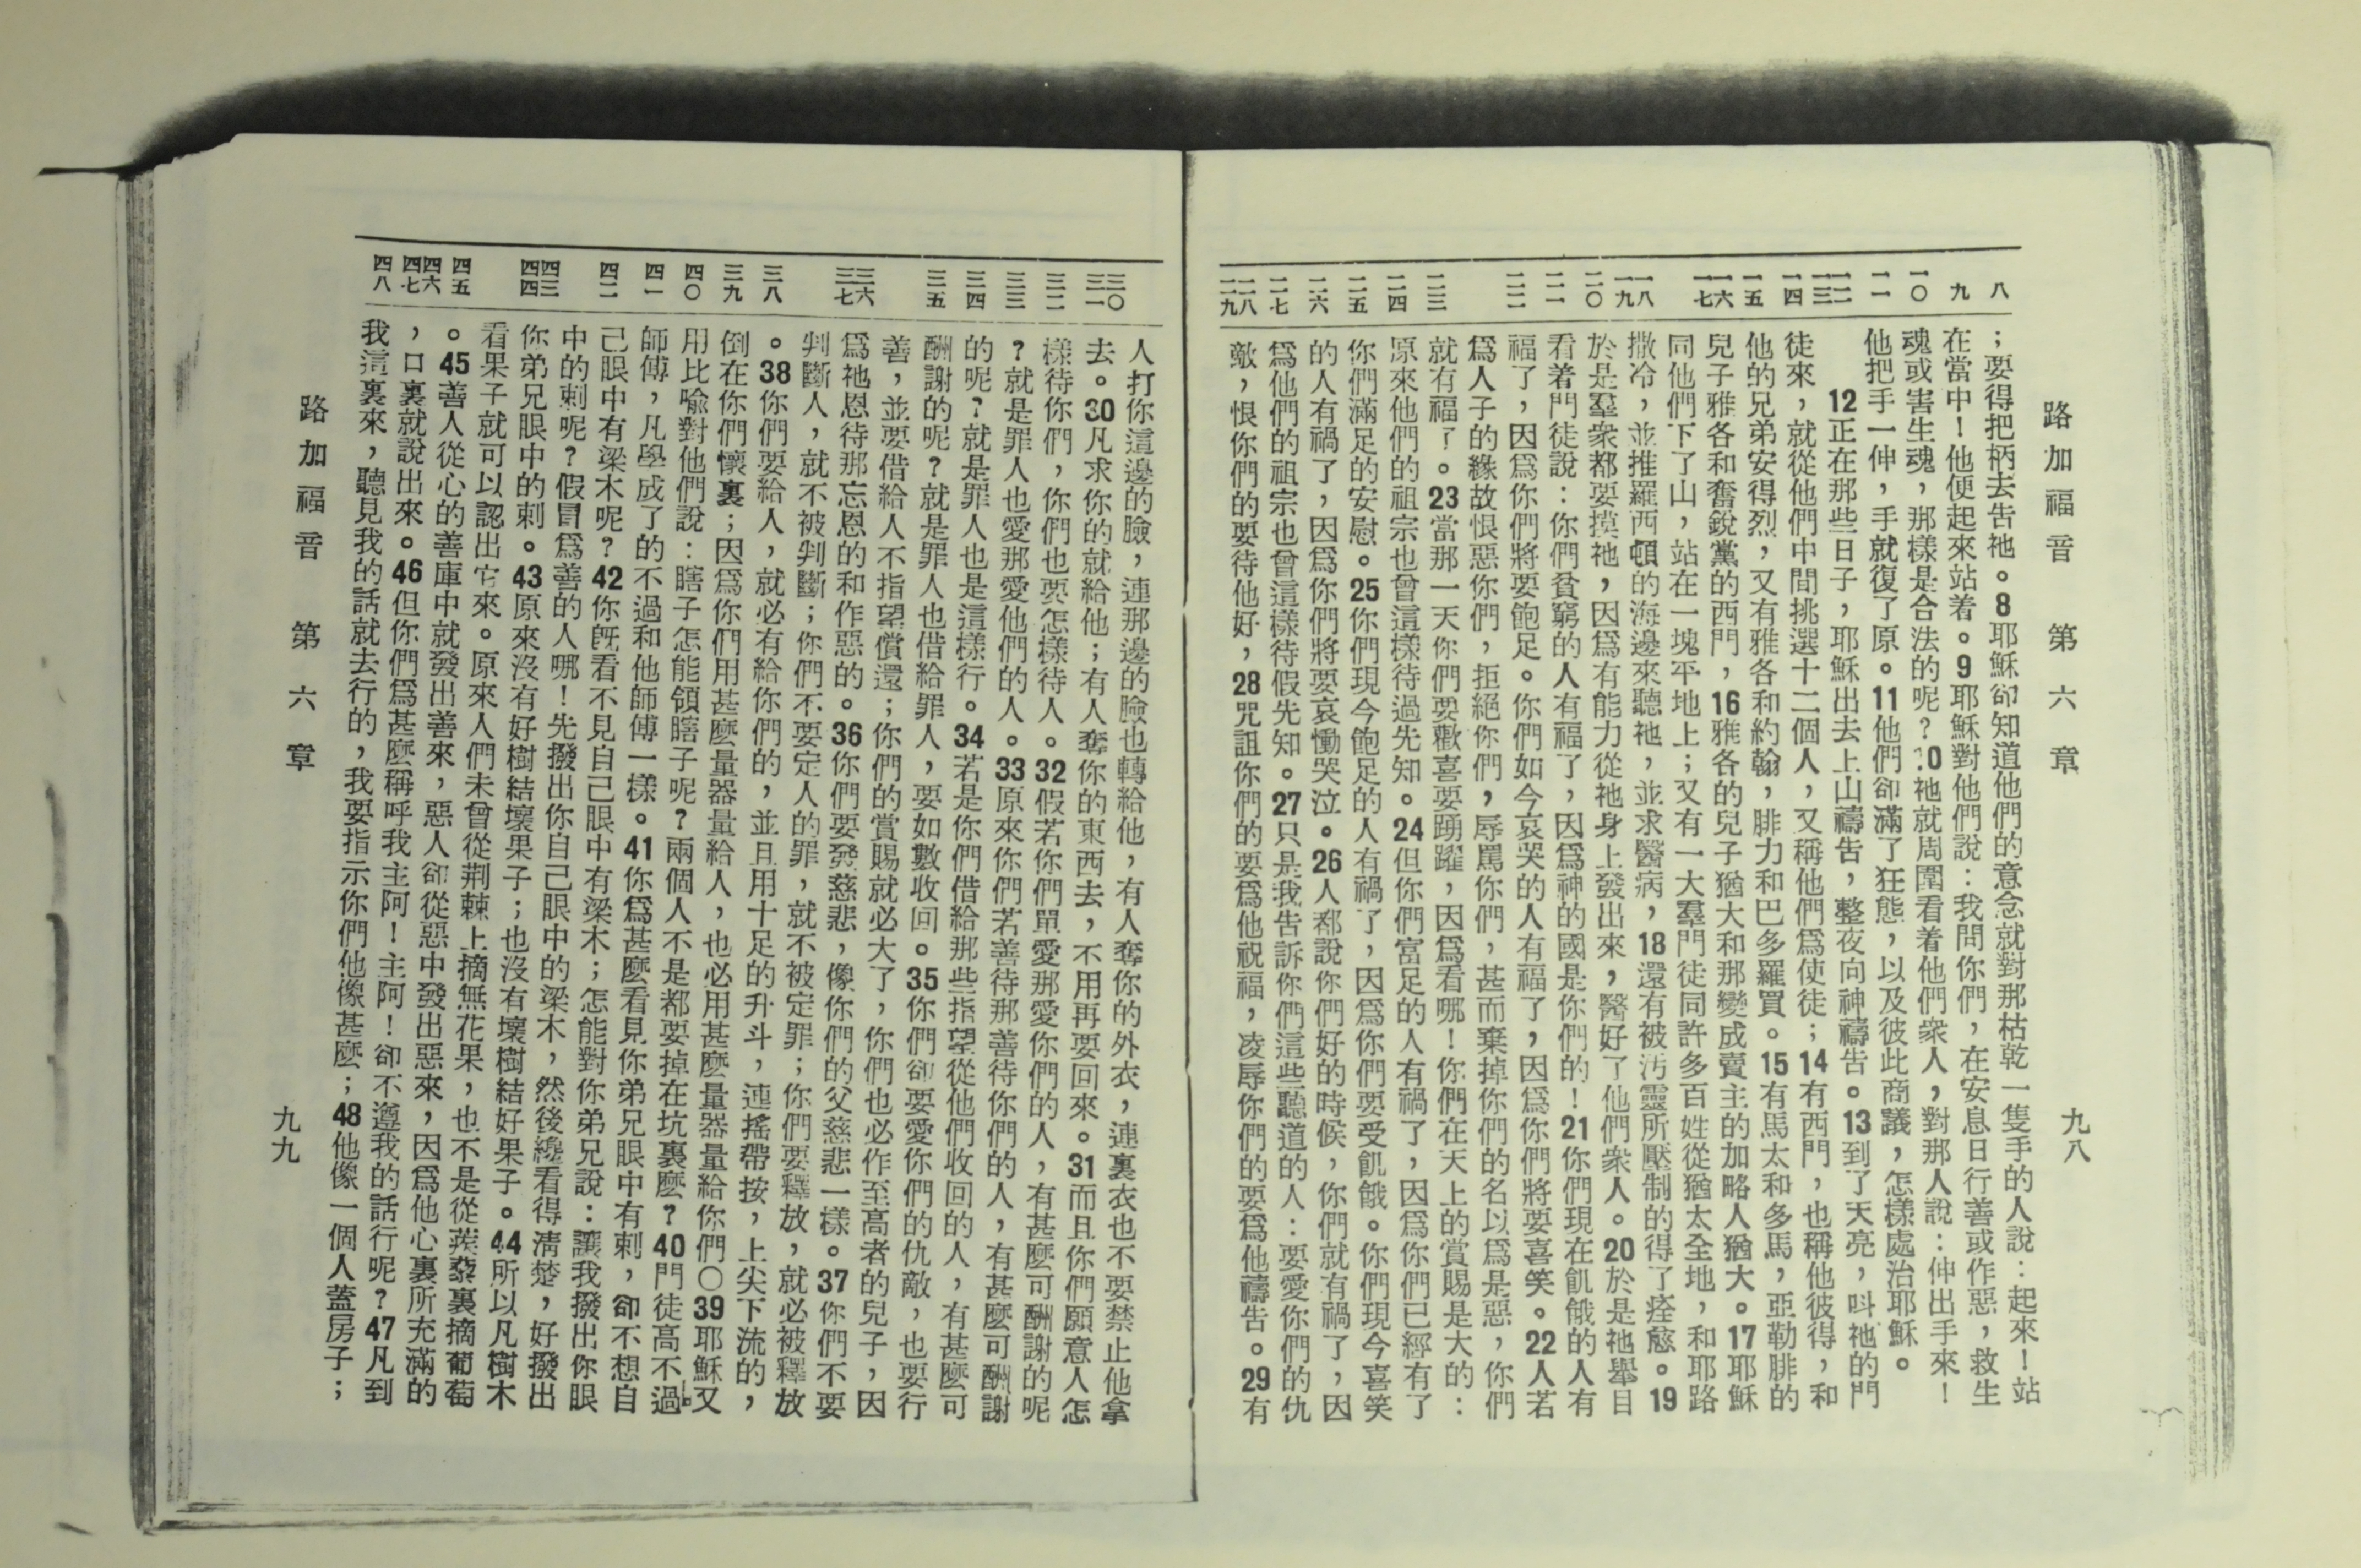 路加福音　第六章　九八
八
九
一〇
一一
一二
一三
一四
一五
一六
一七
一八
一九
二〇
二一
二二
二三
二四
二五
二六
二七
二八
二九
；要得把柄去告祂。8耶穌卻知道他們的意念就對那枯乾一隻手的人說：起來！站
在當中！他便起來站着。9耶穌對他們說：我問你們，在安息日行善或作惡，救生
魂或害生魂，那樣是合法的呢？10祂就周圍看着他們衆人，對那人說：伸出手來！
他把手一伸，手就復了原。11他們卻滿了狂態，以及彼此商議，怎樣處治耶穌。
12正在那些日子，耶穌出去上山禱告，整夜向神禱告。13到了天亮，叫祂的門
徒來，就從他們中間挑選十二個人，又稱他們爲使徒；14有西門，也稱他彼得，和
他的兄弟安得烈，又有雅各和約翰，腓力和巴多羅買。15有馬太和多馬，亞勒腓的
兒子雅各和奮銳黨的西門，16雅各的兒子猶大和那變成賣主的加略人猶大。17耶穌
同他們下了山，站在一塊平地上；又有一大羣門徒同許多百姓從猶太全地，和耶路
撒冷，並推羅西頓的海邊來聽祂，並求醫病，18還有被汚靈所壓制的得了痊愈。19
於是羣衆都要摸祂，因爲有能力從祂身上發出來，醫好了他們衆人。20於是祂舉目
看着門徒說：你們貧窮的人有福了，因爲神的國是你們的！21你們現在飢餓的人有
福了，因爲你們將要飽足。你們如今哀哭的人有福了，因爲你們將要喜笑。22人若
爲人子的緣故恨惡你們，拒絕你們，辱罵你們，甚而棄掉你們的名以爲是惡，你們
就有福了。23當那一天你們要歡喜要踴躍，因爲看哪！你們在天上的賞賜是大的：
原來他們的祖宗也曾這樣待過先知。24但你們富足的人有禍了，因爲你們已經有了
你們滿足的安慰。25你們現今飽足的人有禍了，因爲你們要受飢餓。你們現今喜笑
的人有禍了，因爲你們將要哀慟哭泣。26人都說你們好的時候，你們就有禍了，因
爲他們的祖宗也曾這樣待假先知。27只是我告訴你們這些聽道的人：要愛你們的仇
敵，恨你們的要待他好，28咒詛你們的要爲他祝福，凌辱你們的要爲他禱告。29有
三〇
三一
三二
三三
三四
三五
三六
三七
三八
三九
四〇
四一
四二
四三
四四
四五
四六
四七
四八
人打你這邊的臉，連那邊的臉也轉給他，有人奪你的外衣，連裏衣也不要禁止他拿
去。30凡求你的就給他；有人奪你的東西去，不用再要回來。31而且你們願意人怎
樣待你們，你們也要怎樣待人。32假若你們單愛那愛你們的人，有甚麼可酬謝的呢
？就是罪人也愛那愛他們的人。33原來你們若善待那善待你們的人，有甚麼可酬謝
的呢？就是罪人也是這樣行。34若是你們借給那些指望從他們收回的人，有甚麼可
酬謝的呢？就是罪人也借給罪人，要如數收回。35你們卻要愛你們的仇敵，也要行
善，並要借給人不指望償還；你們的賞賜就必大了，你們也必作至高者的兒子，因
爲祂恩待那忘恩的和作惡的。36你們要發慈悲，像你們的父慈悲一樣。37你們不要
判斷人，就不被判斷；你們不要定人的罪，就不被定罪；你們要釋放，就必被釋放
。38你們要給人，就必有給你們的，並且用十足的升斗，連搖帶按，上尖下流的，
倒在你們懷裏；因爲你們用甚麼量器量給人，也必用甚麼量器量給你們〇39耶穌又
用比喩對他們說：瞎子怎能領瞎子呢？兩個人不是都要掉在坑裏麼？40門徒高不過
師傅，凡學成了的不過和他師傅一樣。41你爲甚麼看見你弟兄眼中有刺，卻不想自
己眼中有梁木呢？42你旣看不見自己眼中有梁木；怎能對你弟兄說：讓我撥出你眼
中的刺呢？假冒爲善的人哪！先撥出你自己眼中的梁木，然後纔看得淸楚，好撥出
你弟兄眼中的刺。43原來沒有好樹結壞果子；也沒有壞樹結好果子。44所以凡樹木
看果子就可以認出它來。原來人們未曾從荆棘上摘無花果，也不是從蒺藜裏摘葡萄
。45善人從心的善庫中就發出善來，惡人卻從惡中發出惡來，因爲他心裏所充滿的
，口裏就說出來。46但你們爲甚麼稱呼我主阿！主阿！卻不遵我的話行呢？47凡到
我這裏來，聽見我的話就去行的，我要指示你們他像甚麼；48他像一個人蓋房子；
路加福音　第六章　九九